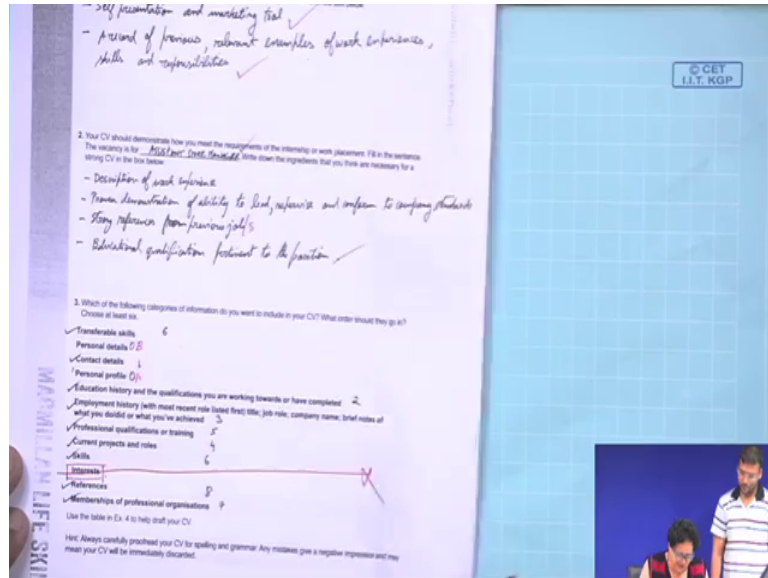 - Self presentation and marketing tool
- A record of previous, relevant examples of work experiences,
skills and responsibilities
© CET
I.I.T. KGP
2. Your CV should demonstrate how you meet the requirements of the internship or work placement. Fill in the sentence.
The vacancy is for Assistant Write down the ingredients that you think are necessary for a
strong CV in the box below.
- Description of work experience
- Proven demonstration of ability to lead, supervise and conform to company standards
- Strong references from previous job/s
- Educational qualification pertinent to the position
3. Which of the following categories of information do you want to include in your CV? What order should they go in?
Choose at least six.
Transferable skills 6
Personal details
Contact details 1
Personal profile
Education history and the qualifications you are working towards or have completed 2
Employment history (with most recent role listed first) title; job role; company name; brief notes of
what you do/did or what you've achieved 3
Professional qualifications or training 5
Current projects and roles 4
Skills 6
Interests
References 8
Memberships of professional organisations 9
Use the table in Ex. 4 to help draft your CV.
Hint: Always carefully proofread your CV for spelling and grammar. Any mistakes give a negative impression and may
mean your CV will be immediately discarded.
MACMILLAN LIFE SKIL